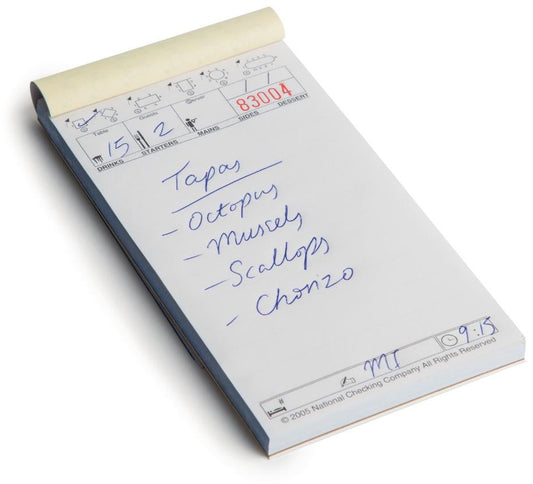 Table Guests Server
15 2 83004
DRINKS STARTERS MAINS SIDES DESSERT
Tapas
- Octopus
- Mussels
- Scallops
- Chorizo
# MT 9:15
© 2005 National Checking Company All Rights Reserved